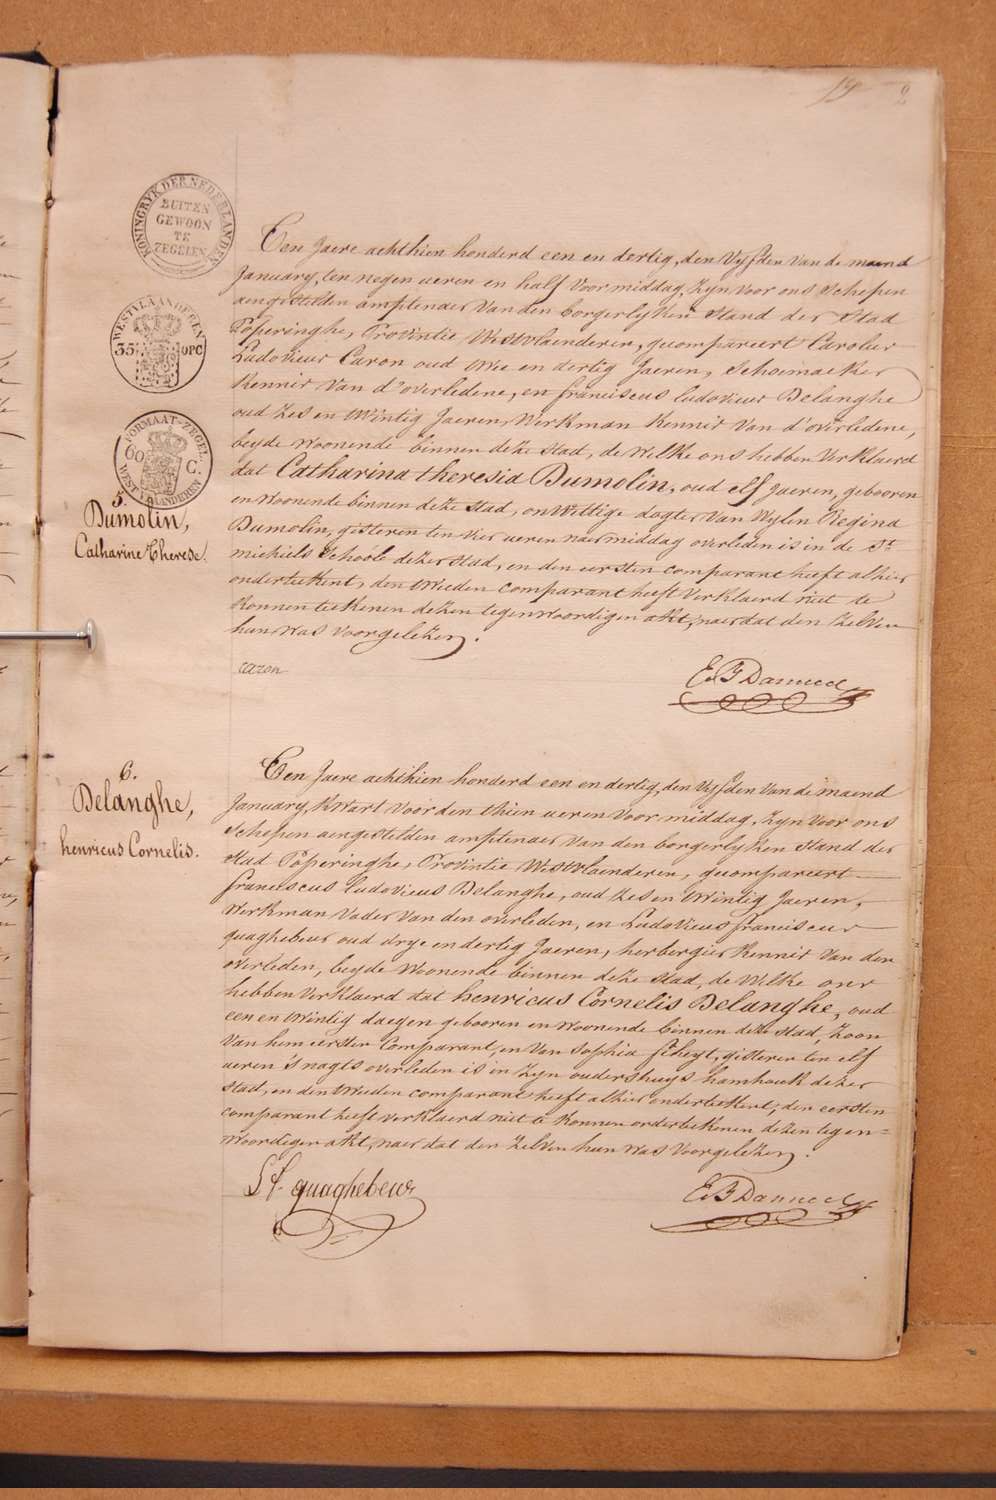 19 2
KONINGRYK DER NEDERLANDEN
BUITEN
GEWOON
TE
ZEGELEN
WESTVLAANDEREN
35 OPC
FORMAAT-ZEGEL
60 C.
WESTVLAANDEREN
5.
Dumolin,
Catharine Therese.
Een Jaere achthien honderd een en dertig, den Vyfden Van de maend
January, ten negen ueren en half Voor middag, Zyn Voor ons Schepen
aengestelden amptenaer Van den borgerlyken Stand der Stad
Poperinghe, Provintie Westvlaenderen, gecompareert Carolus
Ludovicus Caron oud twee en dertig Jaeren, Schoemaeker
Kennis Van d'overledene, en franciscus ludovicus Delanghe
oud Zes en twintig Jaeren, Werkman Kennis Van d'overledene,
beyde woonende binnen deze Stad, de Welke ons hebben Verklaerd
dat Catharina theresia Dumolin, oud elf Jaeren, gebooren
en Woonende binnen deze Stad, onwettige dogter Van Wylen Regina
Dumolin, gisteren ten vier ueren naer middag overleden is in de St
michiels Schoole dezer Stad, en den eersten comparant heeft alhier
onderteekent, den tweeden comparant heeft Verklaerd niet te
Konnen teekenen dezen tegenwoordigen akt, naer dat den Zelven
hun Was Voorgelezen.
caron
E. B Dannoot
6.
Delanghe,
henricus Cornelis.
Een Jaere achthien honderd een en dertig, den Vyfden Van de maend
January, Kwart Voor den thien ueren Voor middag, Zyn Voor ons
Schepen aengestelden amptenaer Van den borgerlyken Stand der
Stad Poperinghe, Provintie Westvlaenderen, gecompareert
franciscus ludovicus Delanghe, oud Zes en twintig Jaeren,
Werkman Vader Van den overleden, en Ludovicus franciscus
quaghebeur oud drye en dertig Jaeren, herbergier Kennis Van den
overleden, beyde Woonende binnen deze Stad, de Welke ons
hebben Verklaerd dat henricus Cornelis Delanghe, oud
een en twintig daegen gebooren en woonende binnen deze Stad, Zoon
Van hem eersten Comparant, en Van Sophia Scheyt, gisteren ten elf
ueren 's nagts overleden is in Zyn ouders huys hamhoek dezer
Stad, en den tweeden comparant heeft alhier onderteekent, den eersten
comparant heeft verklaerd niet te Konnen onderteekenen dezen tegen=
woordigen akt, naer dat den Zelven hun Was Voorgelezen.
L f. quaghebeur
E. B Dannoot